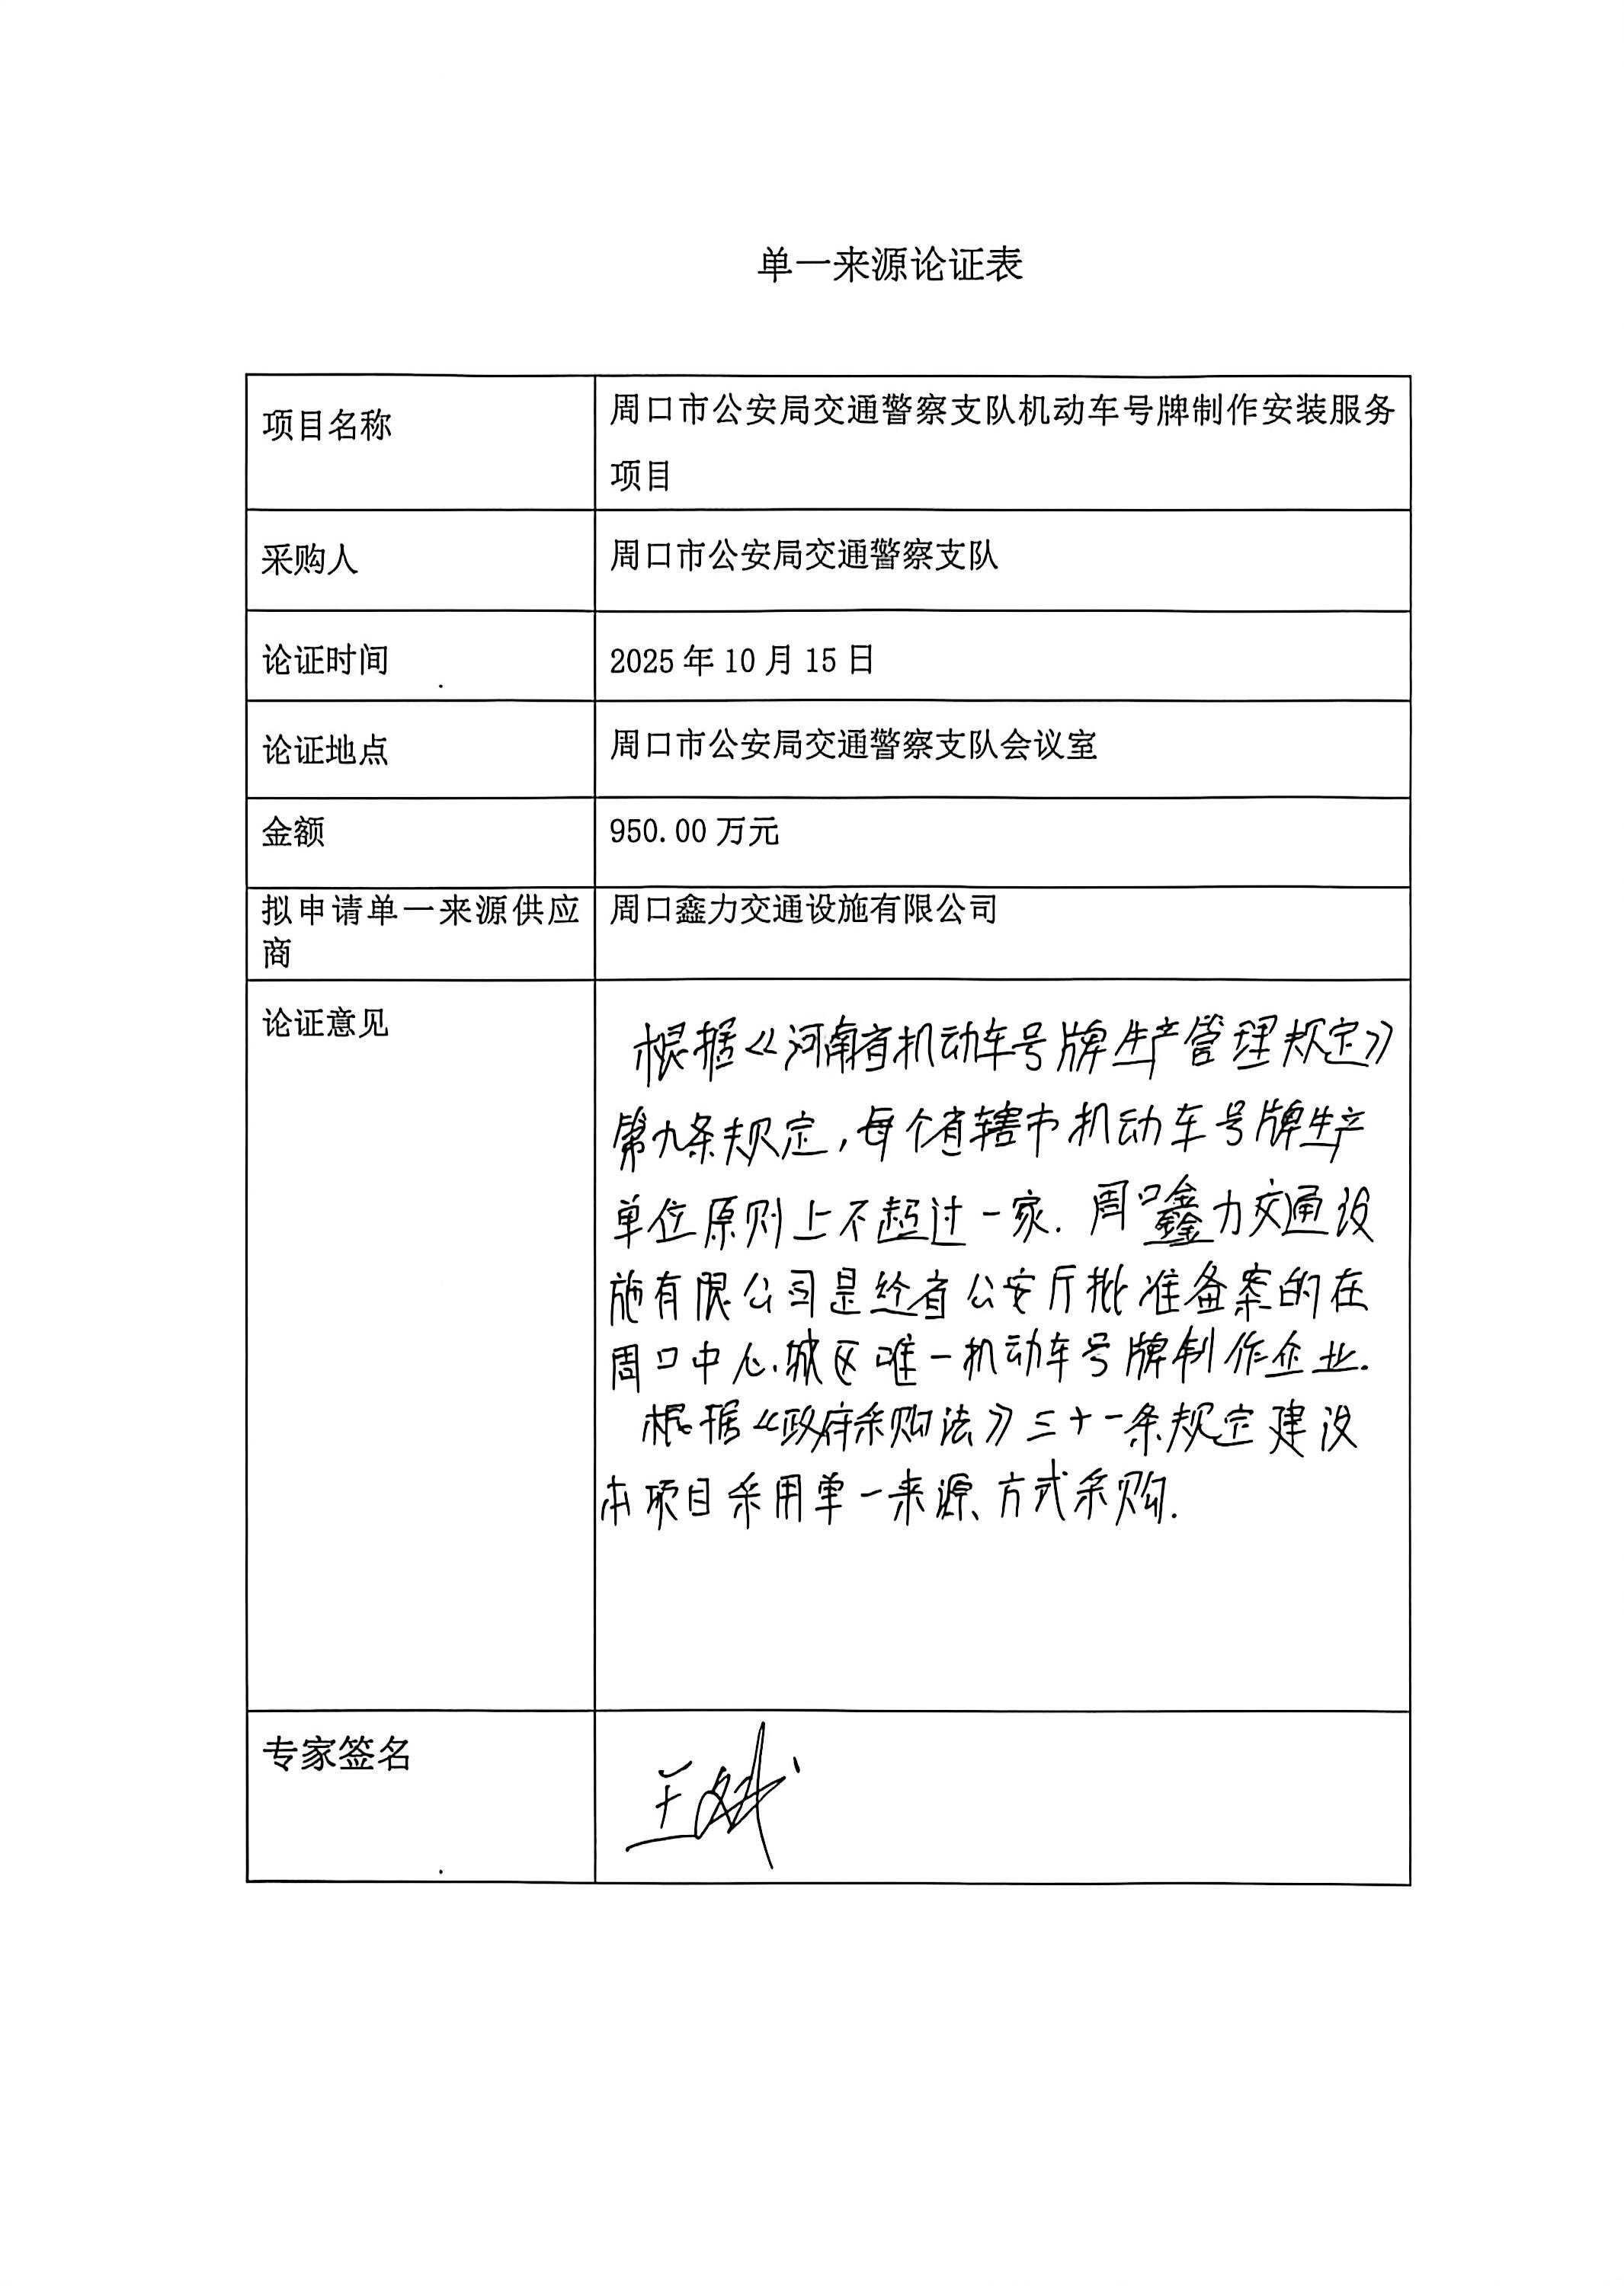 单一来源论证表
项目名称
周口市公安局交通警察支队机动车号牌制作安装服务
项目
采购人
周口市公安局交通警察支队
论证时间
2025年10月15日
论证地点
周口市公安局交通警察支队会议室
金额
950.00万元
拟申请单一来源供应
商
周口鑫力交通设施有限公司
论证意见
根据《河南省机动车号牌生产管理规定》
第九条规定,每个省辖市机动车号牌生产
单位原则上不超过一家.周口鑫力交通设
施有限公司是经省公安厅批准备案的在
周口中心城区唯一机动车号牌制作企业.
根据《政府采购法》三十一条规定建设
本项目采用单一来源方式采购.
专家签名
王